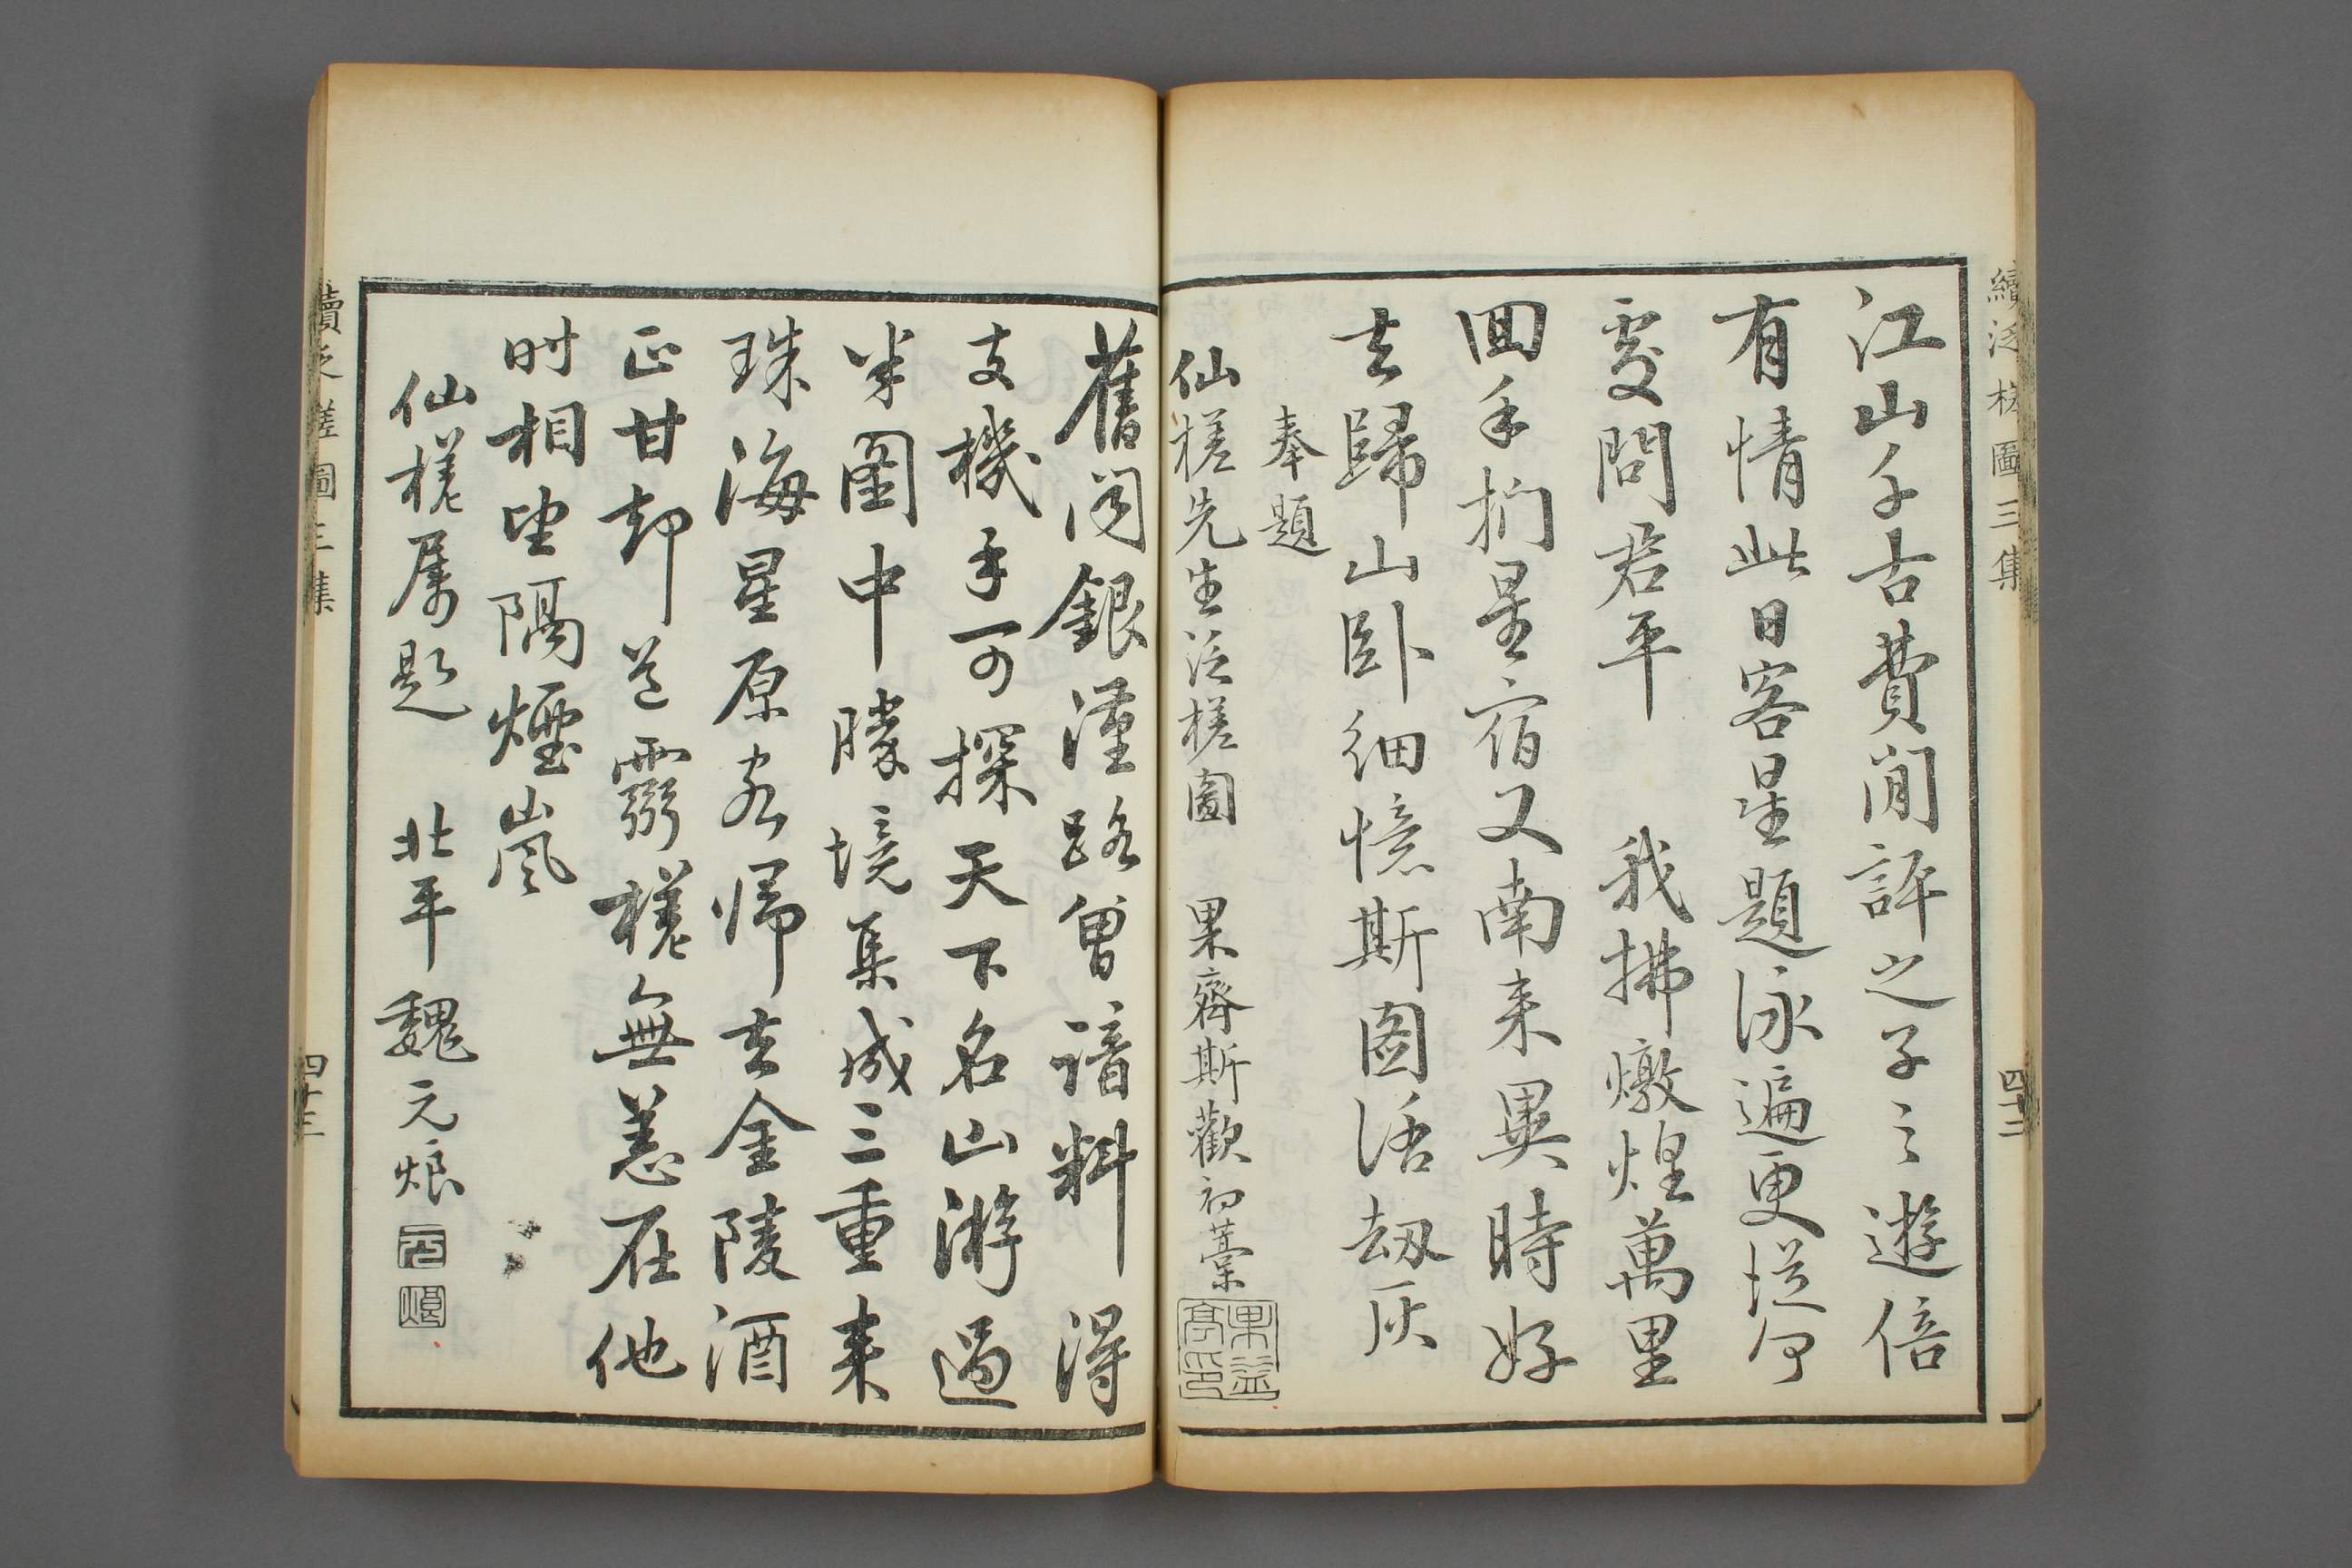 續泛槎圖三集
四十二
江山千古費閒評之子之遊倍
有情此日客星題詠遍更從何
處問君平　我拂燉煌萬里
回手捫星宿又南来異時好
去歸山卧細憶斯图話劫灰
奉題
仙槎先生泛槎圖　果齋斯歡初藁
舊聞銀漢路曾諳料得
支機手可探天下名山游過
半圖中勝境集成三重来
珠海星原客歸去金陵酒
正甘却道靈槎無恙在他
时相望隔煙嵐
仙槎属題　北平魏元烺
元
烺
續泛槎圖三集
四十三